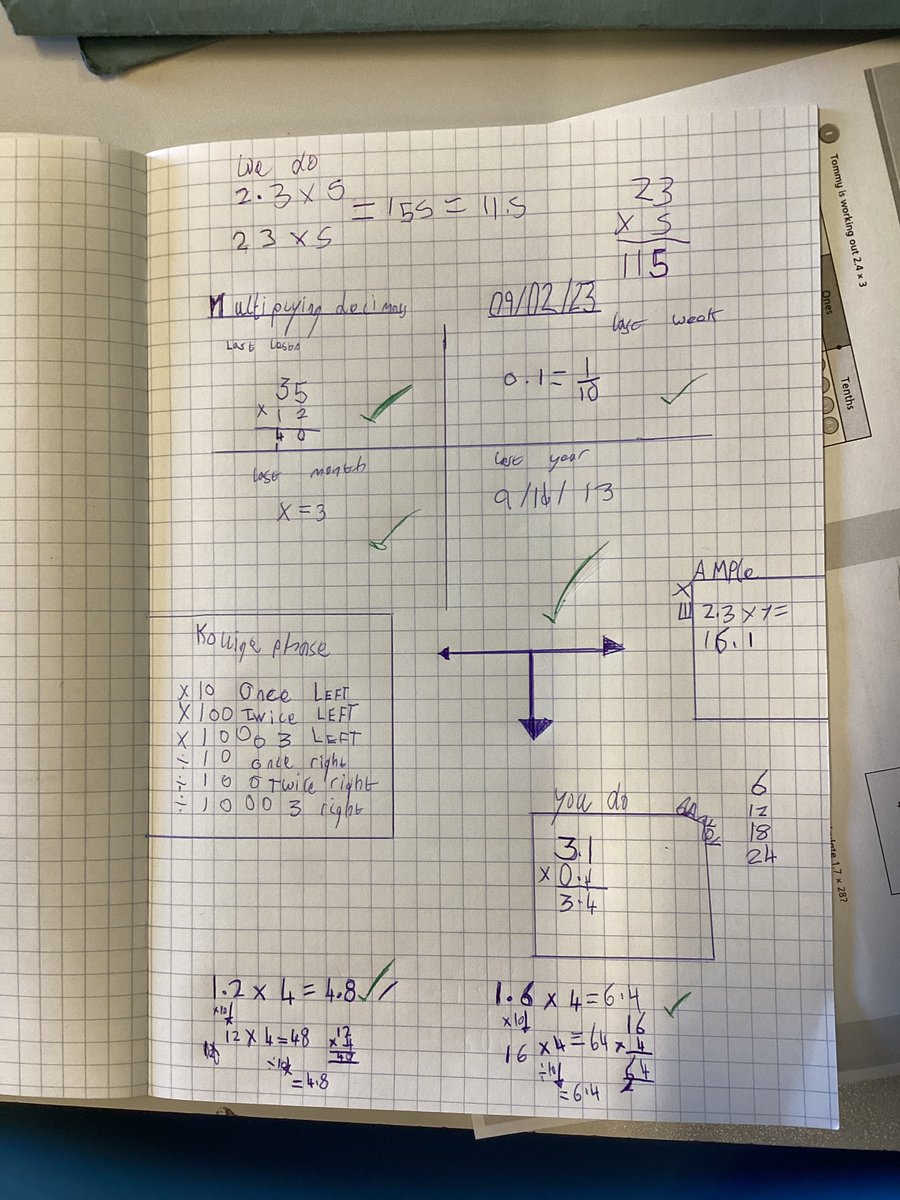 We do
2.3 x 5
= 155 = 11.5
23 x 5
23
x 5
115
Multiplying decimals
09/02/23
Last
last week
35
x 12
40
1
0.1 = 1/10
last month
x = 3
last year
9/16/13
AMPle
X
E
2.3 x 7 =
16.1
x 10 Once LEFT
x 100 Twice LEFT
x 1000 3 LEFT
÷ 10 once right
÷ 100 Twice right
÷ 1000 3 right
you do
3.1
x 0.4
3.4
6
12
18
24
1.2 x 4 = 4.8
x10
12 x 4 = 48
÷10
= 4.8
12
x 4
1.6 x 4 = 6.4
x10
16 x 4 = 64
÷10
= 6.4
16
x 4
64
2
1 Tommy is working out 2.4 x 3
Ones
Tenths
1.7 x 28?